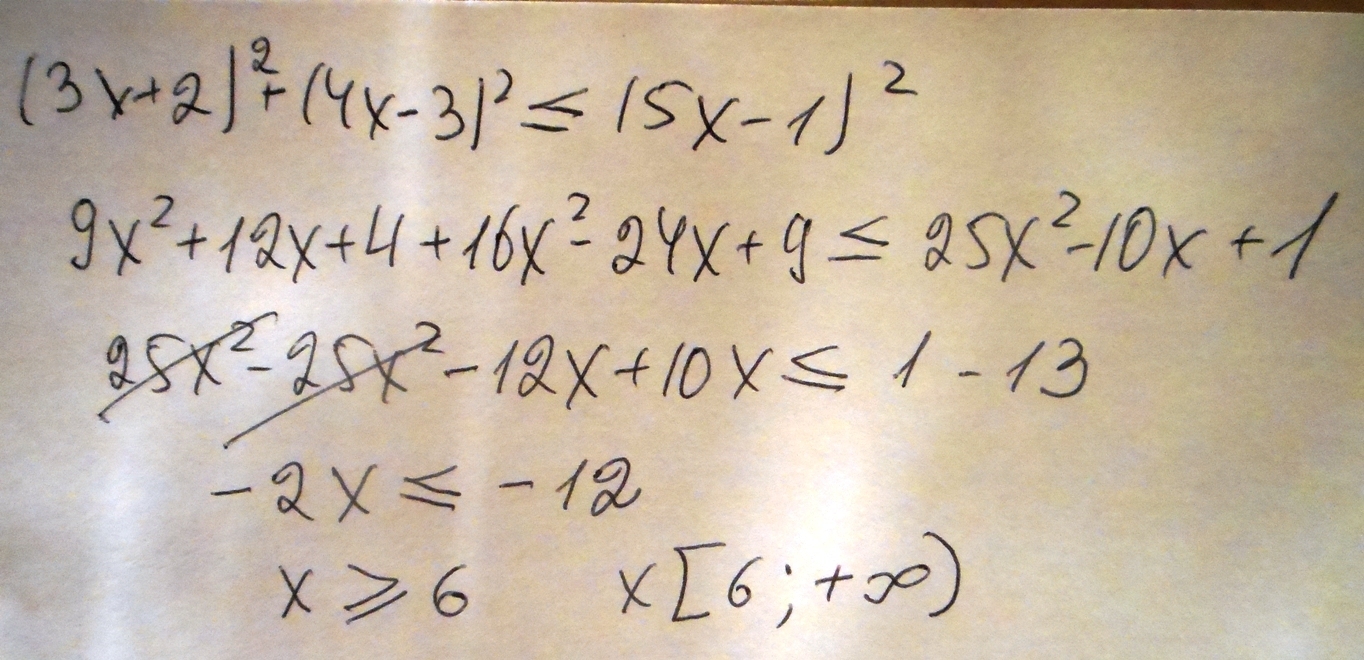 (3x+2)²+(4x-3)² ≤ (5x-1)²
9x²+12x+4+16x²-24x+9 ≤ 25x²-10x+1
25x²-25x²-12x+10x ≤ 1-13
-2x ≤ -12
x ≥ 6 x[6;+∞)